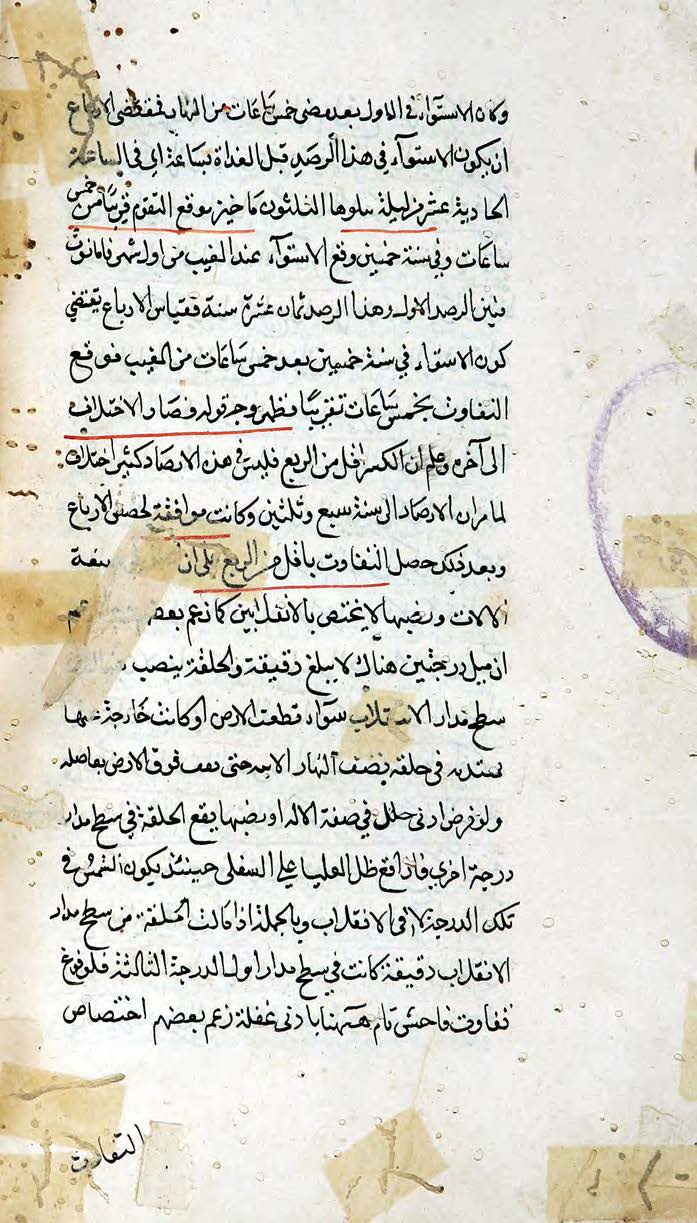 وكان الاستواء في الاول بعد مضى خمس ساعات من النهار فمقتضى الارباع
ان يكون الاستواء في هذا الرصد قبل الغداة بساعة اى فى الساعة
الحادية عشر من ليلة سلوها الثلثون ما خير موقع التقوم قريبا من خمس
ساعات وفي سنة خمسين وقع الاستواء عند المغيب من اول شهر فامانوث
وبين الرصد الاول وهذا الرصد ثمان عشرة سنة فقياس الارباع يقتضي
كون الاستواء في سنة خمسين بعد خمس ساعات من المغيب فوقع
التفاوت بخمس ساعات تقريبا فظهر وجه قوله فصار الاختلاف
الى آخره وعلم ان الكسر اقل من الربع فليس في هذه الارصاد كثير اختلاف
لما مر ان الارصاد الى سنة سبع وثلثين وكانت موافقة لحصص الارباع
وبعد ذلك حصل التفاوت باقل من الربع على ان صفة
الالات ونصبها لا يختص بالانقلابين كما زعم بعضهم
ان ميل درجتين هناك لا يبلغ دقيقة والحلقة ينصب
سطح مدار الانقلاب سواء قطعت الارض او كانت خارجة عنها
فى حلقة نصف النهار حتى فوق الارض
ولو فرض ادنى خلل في صفة الالة او نصبها يقع الحلقة في سطح مدار
درجة اخرى فاذا وقع ظل العليا على السفلى حينئذ يكون الشمس في
تلك الدرجة لا فى الانقلاب وبالجملة اذا مالت الحلقة من سطح مدار
الانقلاب دقيقة كانت في سطح مدار اول الدرجة الثالثة فلوقوع
تفاوت فاحش تام ههنا بادنى غفلة زعم بعضهم اختصاص
التفاوت